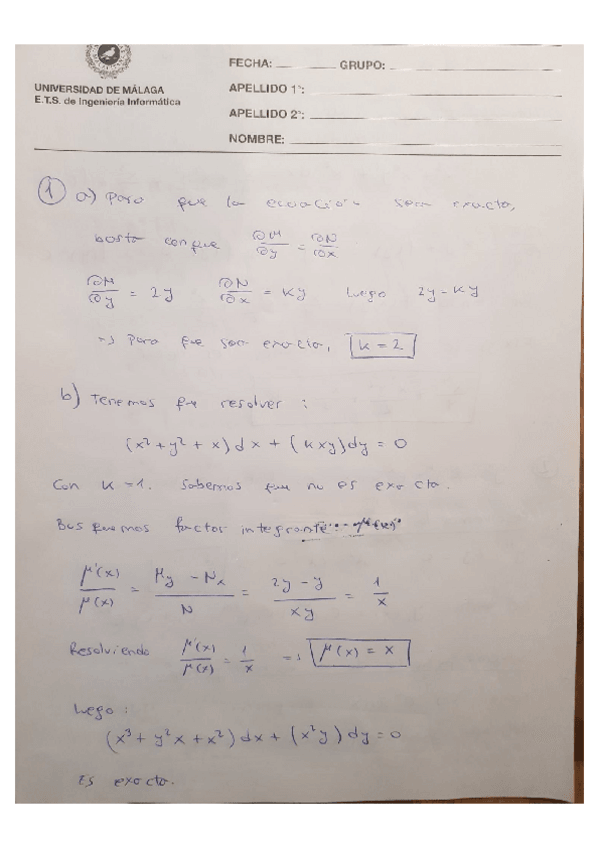 UNIVERSIDAD DE MÁLAGA
E.T.S. de Ingeniería Informática
FECHA: GRUPO:
APELLIDO 1º:
APELLIDO 2º:
NOMBRE:
① a) Para que la ecuación sea exacta,
basta con que ∂M/∂y = ∂N/∂x
∂M/∂y = 2y ∂N/∂x = Ky luego 2y - Ky
=> Para que sea exacta, K = 2
b) Tenemos que resolver :
(x² + y² + x) dx + (kxy) dy = 0
Con K = 1. Sabemos que no es exacta.
Busquemos factor integrante
μ'(x)/μ(x) = (My - Nx)/N = (2y - y)/(xy) = 1/x
Resolviendo μ'(x)/μ(x) = 1/x => μ(x) = x
Luego :
(x³ + y²x + x²) dx + (x²y) dy = 0
Es exacta.